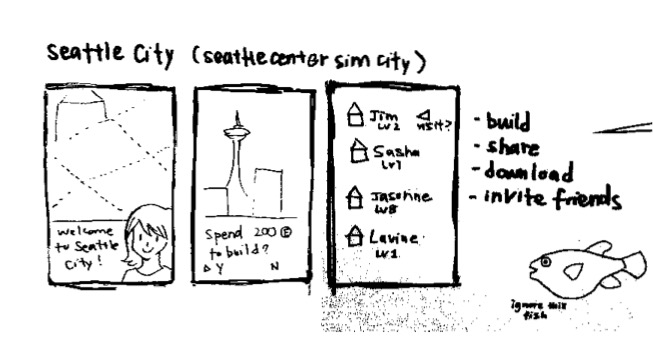 Seattle City (seattlecenter sim city)
Welcome
to Seattle
City!
Spend 200 ©
to build?
Y N
Jim
LV2 visit?
Sasha
LV7
Jasmine
LV8
Lavine
LV1
- build
- share
- download
- invite friends
ignore this
fish